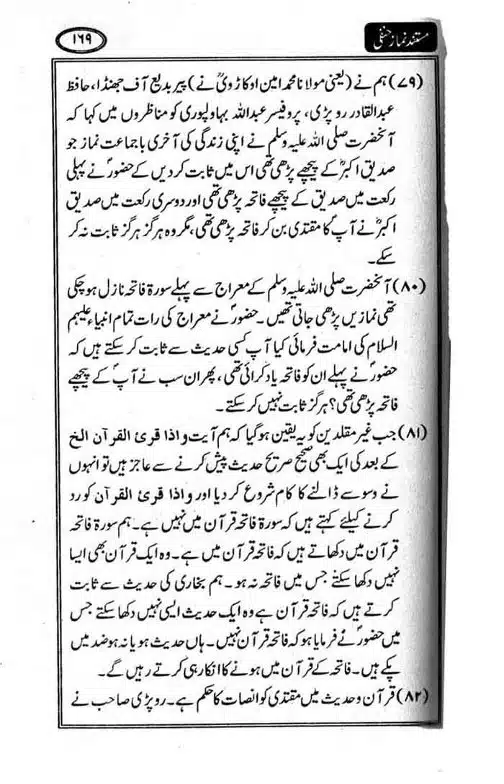 مستند نماز حنفی
۱۶۹
(۷۹) ہم نے (یعنی مولانا محمد امین اوکاڑویؒ نے) پیر بدیع آف جھنڈا، حافظ
عبدالقادر روپڑی، پروفیسر عبداللہ بہاولپوری کو مناظروں میں کہا کہ
آنحضرت صلی اللہ علیہ وسلم نے اپنی زندگی کی آخری باجماعت نماز جو
صدیق اکبرؓ کے پیچھے پڑھی تھی اس میں ثابت کر دیں کے حضورؐ نے پہلی
رکعت میں صدیق کے پیچھے فاتحہ پڑھی تھی اور دوسری رکعت میں صدیق
اکبرؓ نے آپؐ کا مقتدی بن کر فاتحہ پڑھی تھی، مگر وہ ہرگز ہرگز ثابت نہ کر
سکے۔
(۸۰) آنحضرت صلی اللہ علیہ وسلم کے معراج سے پہلے سورۃ فاتحہ نازل ہو چکی
تھی نمازیں پڑھی جاتی تھیں۔ حضورؐ نے معراج کی رات تمام انبیاء علیہم
السلام کی امامت فرمائی کیا آپ کسی حدیث سے ثابت کر سکتے ہیں کہ
حضورؐ نے پہلے ان کو فاتحہ یاد کرائی تھی، پھر ان سب نے آپؐ کے پیچھے
فاتحہ پڑھی تھی؟ ہرگز ثابت نہیں کر سکتے۔
(۸۱) جب غیر مقلدین کو یہ یقین ہو گیا کہ ہم آیت و اذا قرئ القرآن الخ
کے بعد کی ایک بھی صحیح صریح حدیث پیش کرنے سے عاجز ہیں تو انہوں
نے وسوسے ڈالنے کا کام شروع کر دیا اور و اذا قرئ القرآن کو رد
کرنے کیلئے کہتے ہیں کہ سورۃ فاتحہ قرآن میں نہیں ہے۔ ہم سورۃ فاتحہ
قرآن میں دکھاتے ہیں کہ فاتحہ قرآن میں ہے۔ وہ ایک قرآن بھی ایسا
نہیں دکھا سکتے جس میں فاتحہ نہ ہو۔ ہم بخاری کی حدیث سے ثابت
کرتے ہیں کہ فاتحہ قرآن ہے وہ ایک حدیث ایسی نہیں دکھا سکتے جس
میں حضورؐ نے فرمایا ہو کہ فاتحہ قرآن نہیں۔ ہاں حدیث ہو یا نہ ہو ضد میں
پکے ہیں۔ فاتحہ کے قرآن میں ہونے کا انکار ہی کرتے رہیں گے۔
(۸۲) قرآن و حدیث میں مقتدی کو انصات کا حکم ہے۔ روپڑی صاحب نے